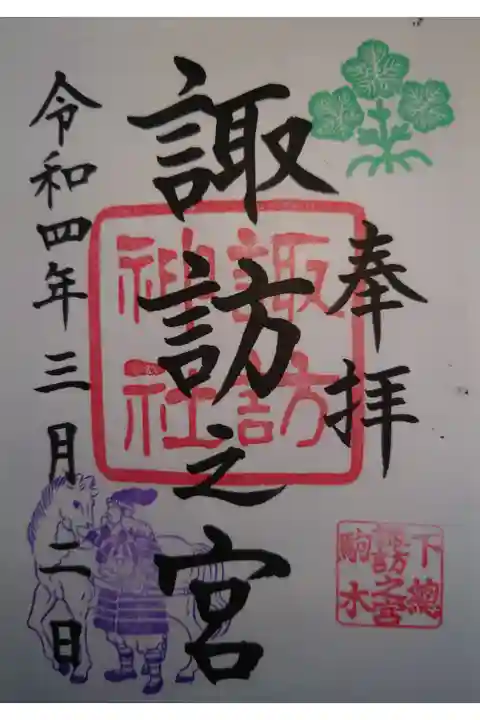 奉拝
諏訪之宮
令和四年三月二日
諏訪
神社
下總
諏訪之宮
駒木